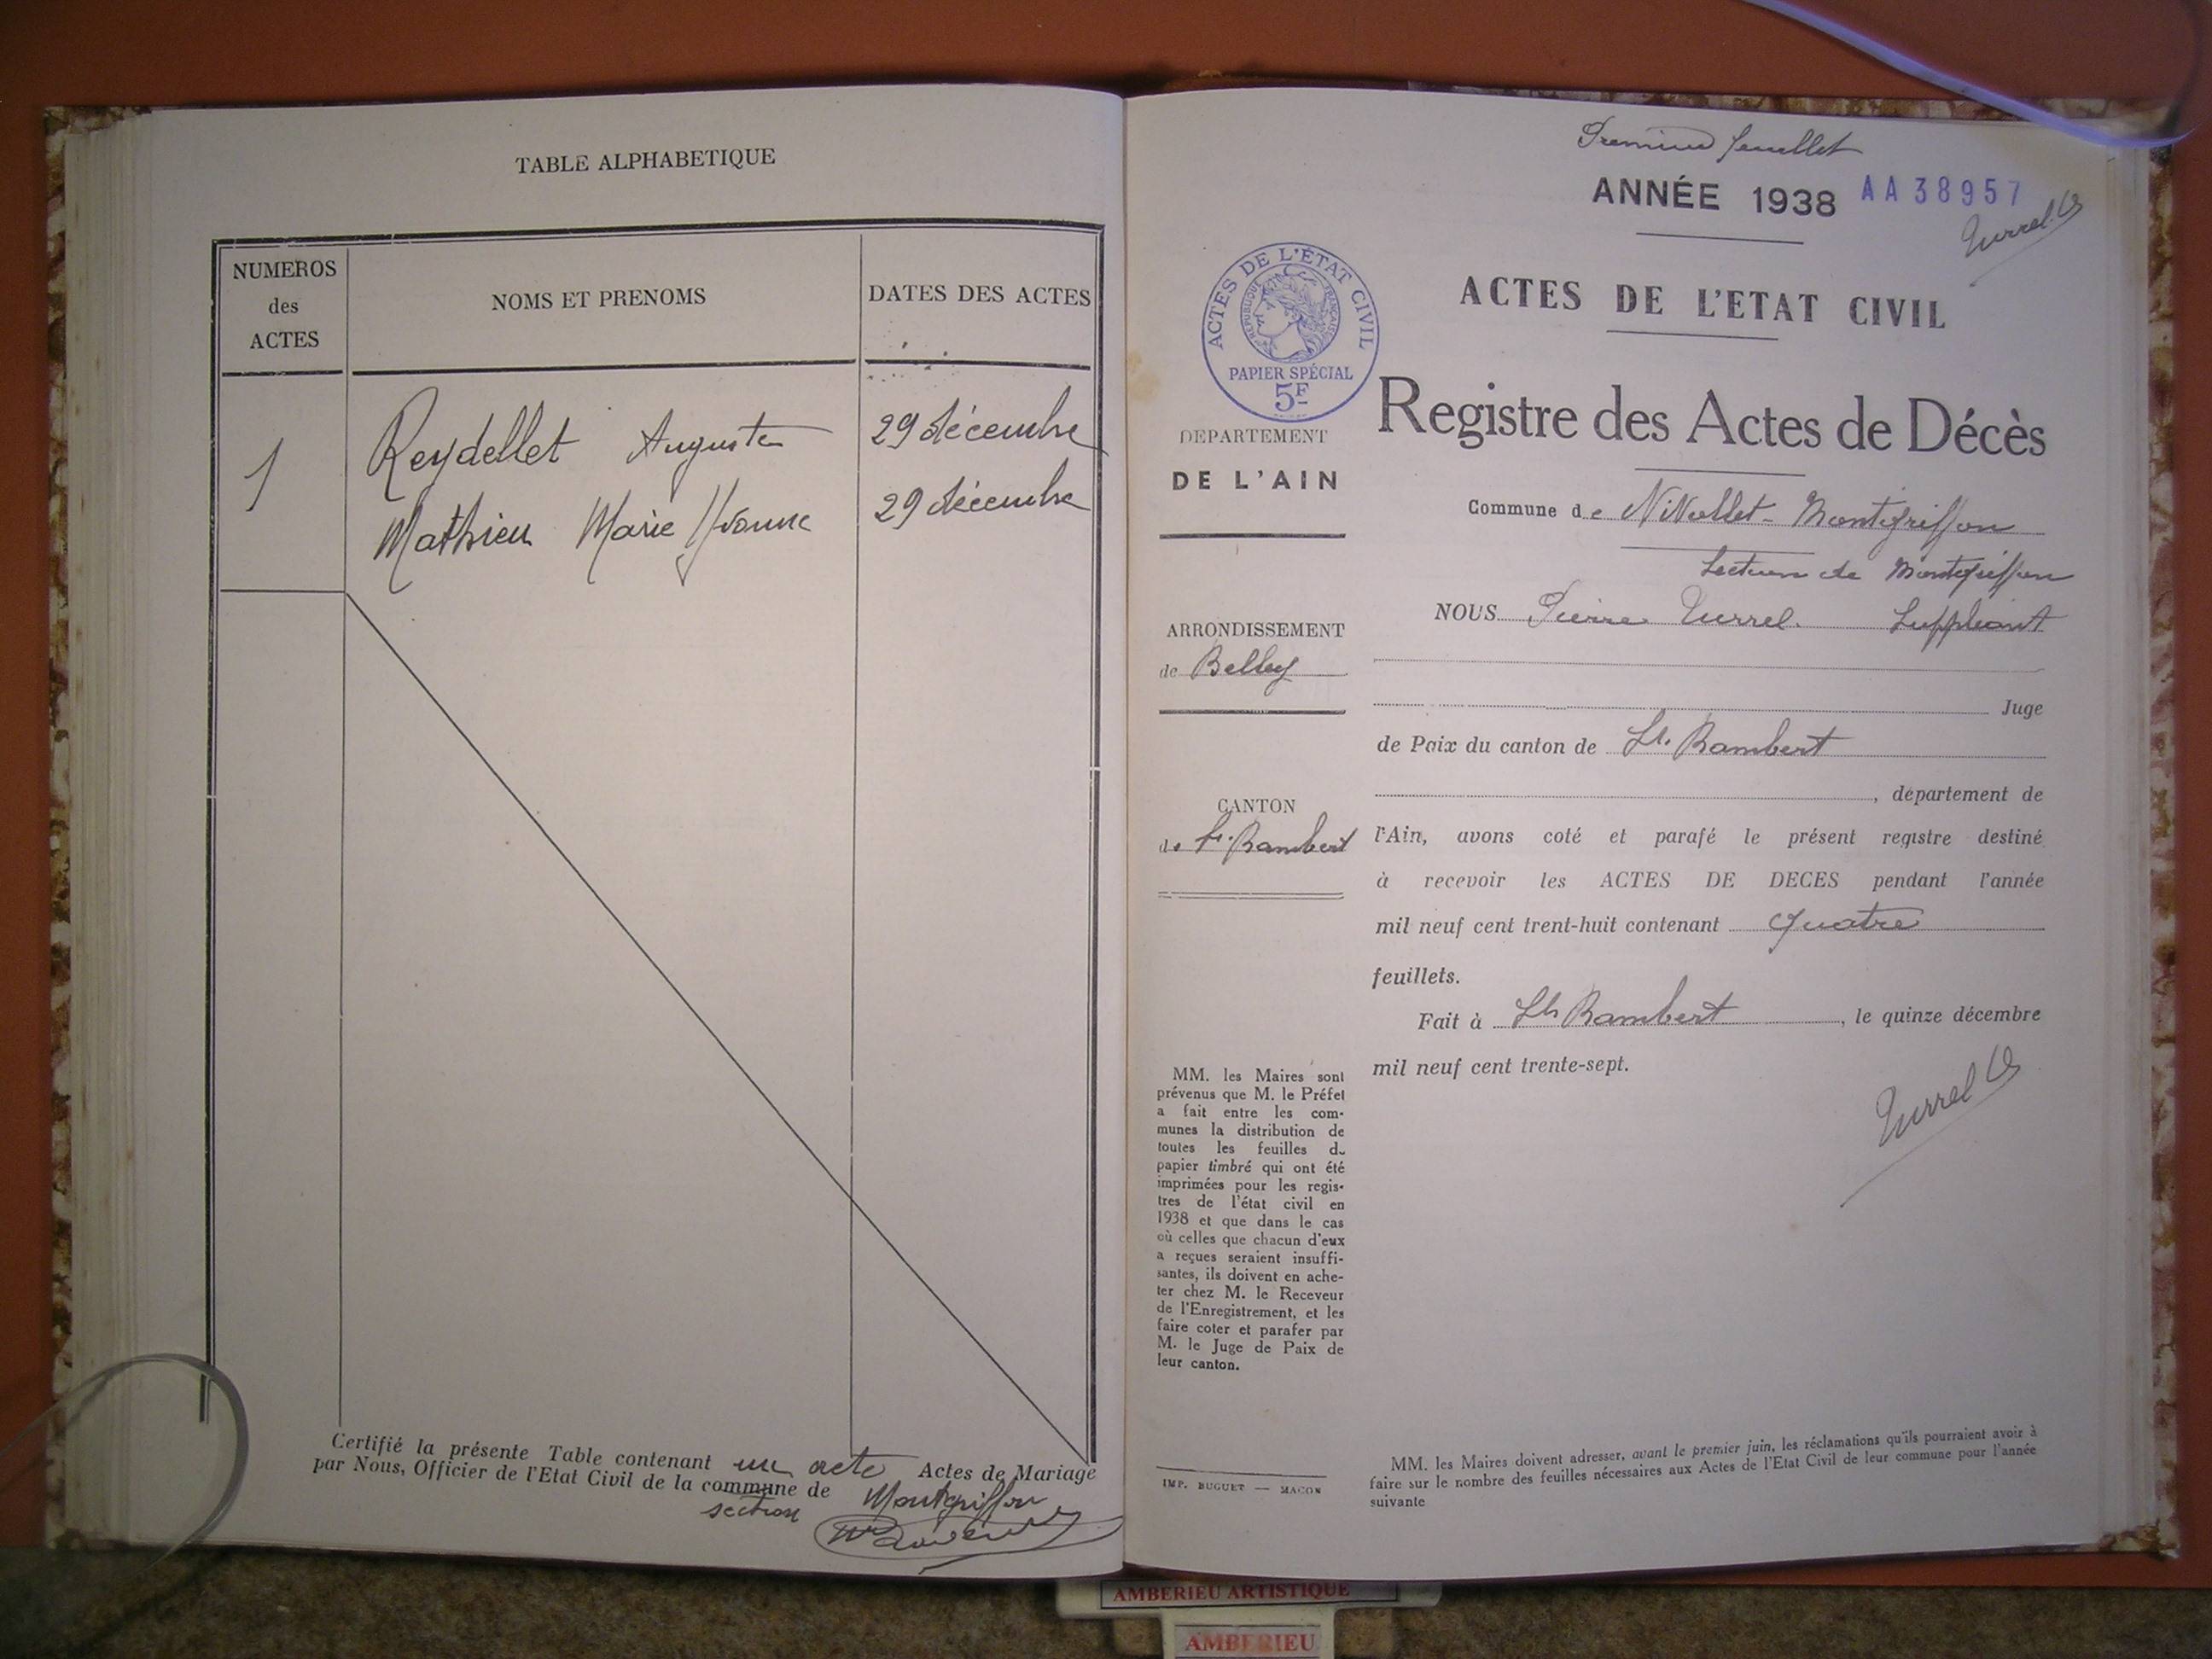 TABLE ALPHABETIQUE
NUMEROS
des
ACTES
NOMS ET PRENOMS
DATES DES ACTES
1
Reydellet Auguste
29 décembre
Mathieu Marie Yvonne
29 décembre
Certifié la présente Table contenant un acte Actes de Mariage
par Nous, Officier de l'Etat Civil de la commune de Montgriffon
section
Premier feuillet
ANNÉE 1938 AA38957
Turrel
ACTES DE L'ÉTAT CIVIL
RÉPUBLIQUE FRANÇAISE
PAPIER SPÉCIAL
5F
ACTES DE L'ETAT CIVIL
Registre des Actes de Décès
DEPARTEMENT
DE L'AIN
Commune de Nivollet-Montgriffon
Section de Montgriffon
ARRONDISSEMENT
de Belley
NOUS Pierre Turrel. Suppléant
Juge
de Paix du canton de St. Rambert
, département de
CANTON
de St. Rambert
l'Ain, avons coté et parafé le présent registre destiné
à recevoir les ACTES DE DECES pendant l'année
mil neuf cent trent-huit contenant quatre
feuillets.
Fait à St Rambert, le quinze décembre
mil neuf cent trente-sept.
Turrel
MM. les Maires sont
prévenus que M. le Préfet
a fait entre les com-
munes la distribution de
toutes les feuilles de
papier timbré qui ont été
imprimées pour les regis-
tres de l'état civil en
1938 et que dans le cas
où celles que chacun d'eux
a reçues seraient insuffi-
santes, ils doivent en ache-
ter chez M. le Receveur
de l'Enregistrement, et les
faire coter et parafer par
M. le Juge de Paix de
leur canton.
IMP. BUGUET — MACON
MM. les Maires doivent adresser, avant le premier juin, les réclamations qu'ils pourraient avoir à
faire sur le nombre des feuilles nécessaires aux Actes de l'Etat Civil de leur commune pour l'année
suivante
AMBERIEU ARTISTIQUE
AMBERIEU